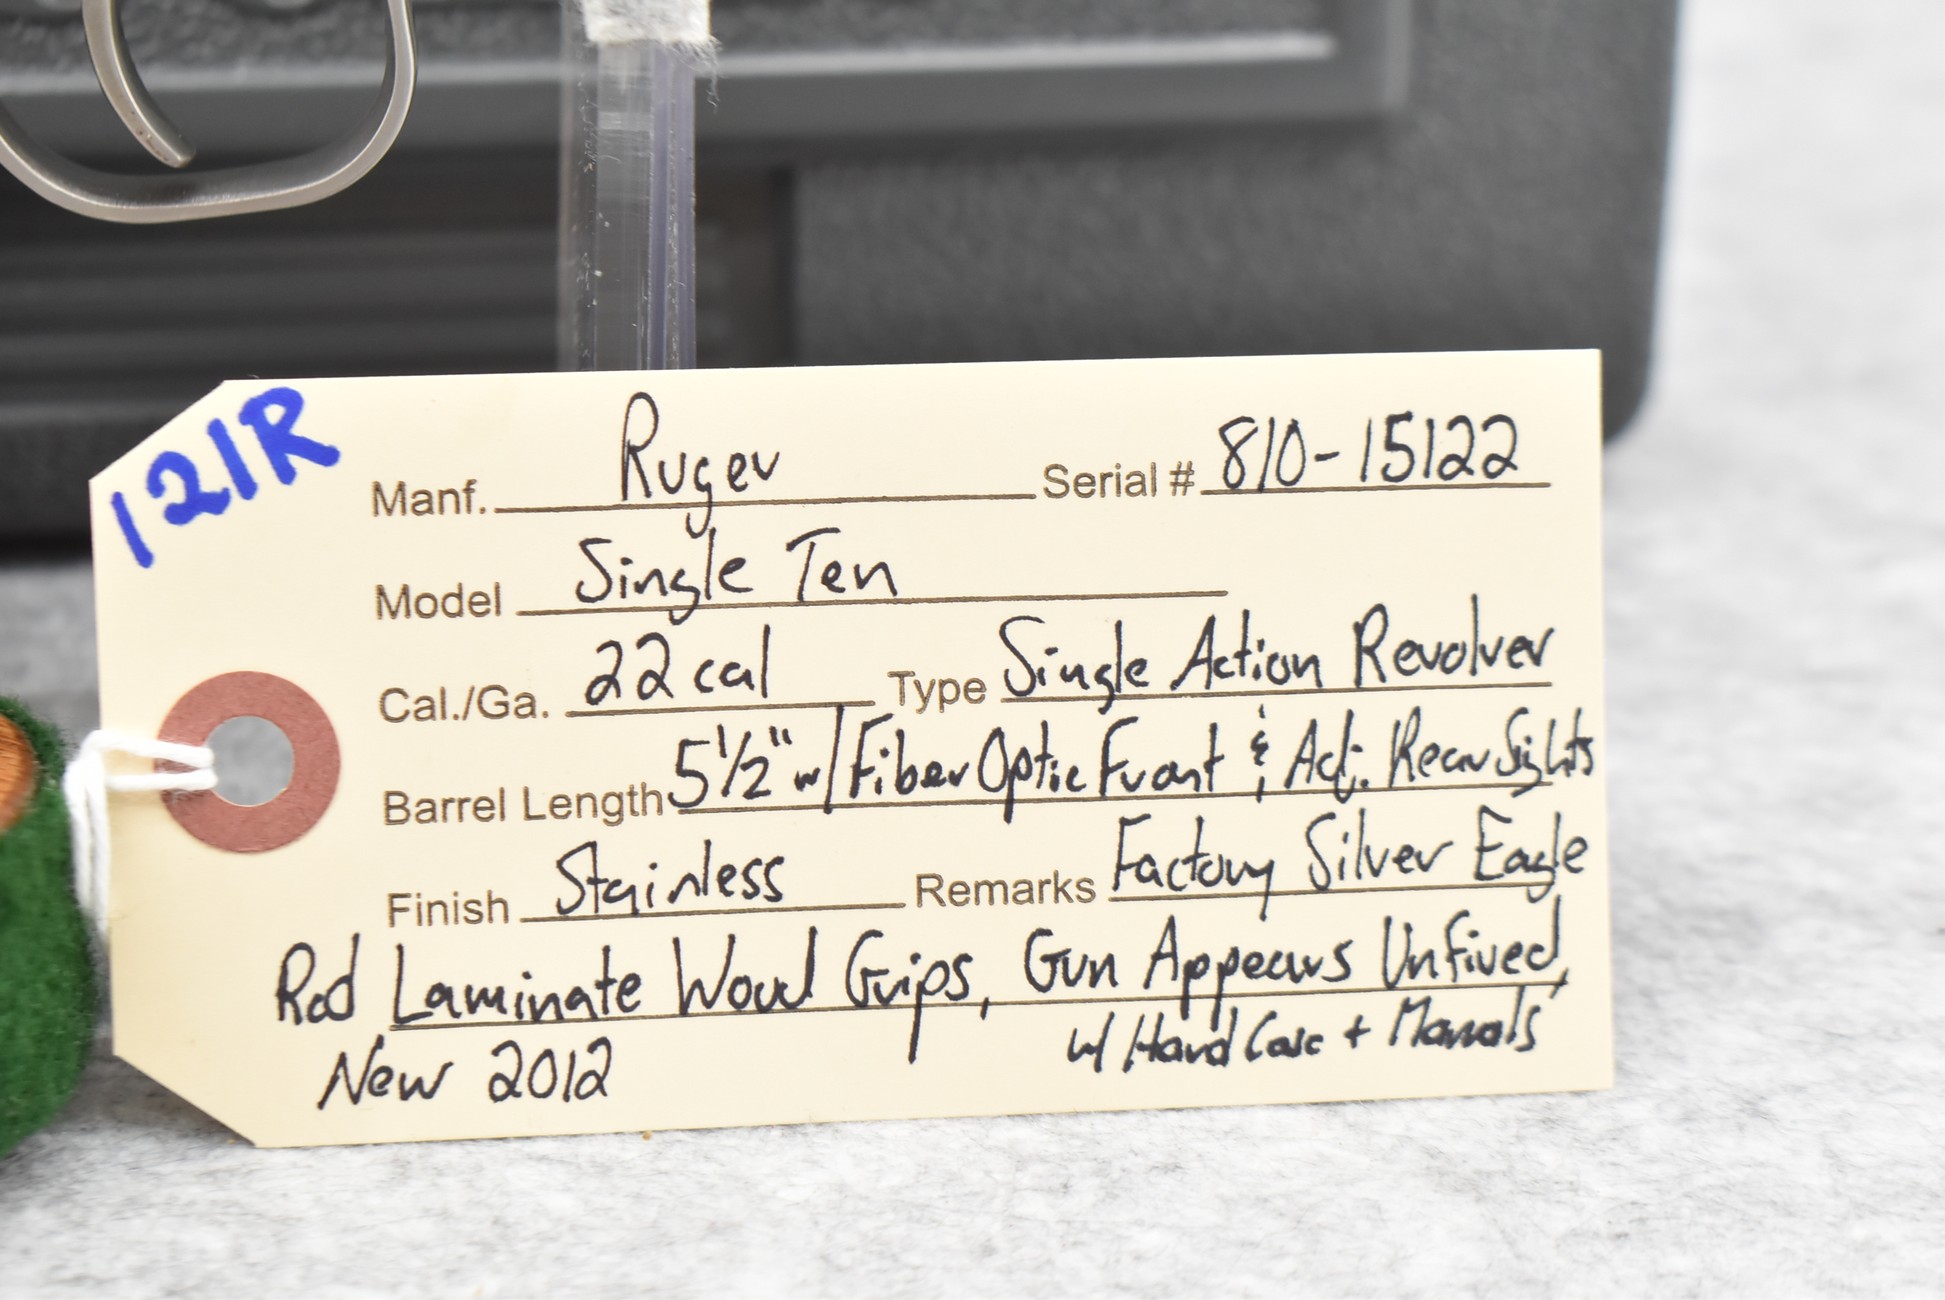 121R
Manf. Ruger Serial # 810-15122
Model Single Ten
Cal./Ga. 22 cal Type Single Action Revolver
Barrel Length 5 1/2" w/ Fiber Optic Front & Adj. Rear Sights
Finish Stainless Remarks Factory Silver Eagle
Red Laminate Wood Grips, Gun Appears Unfired,
New 2012 w/ Hard Case + Manuals